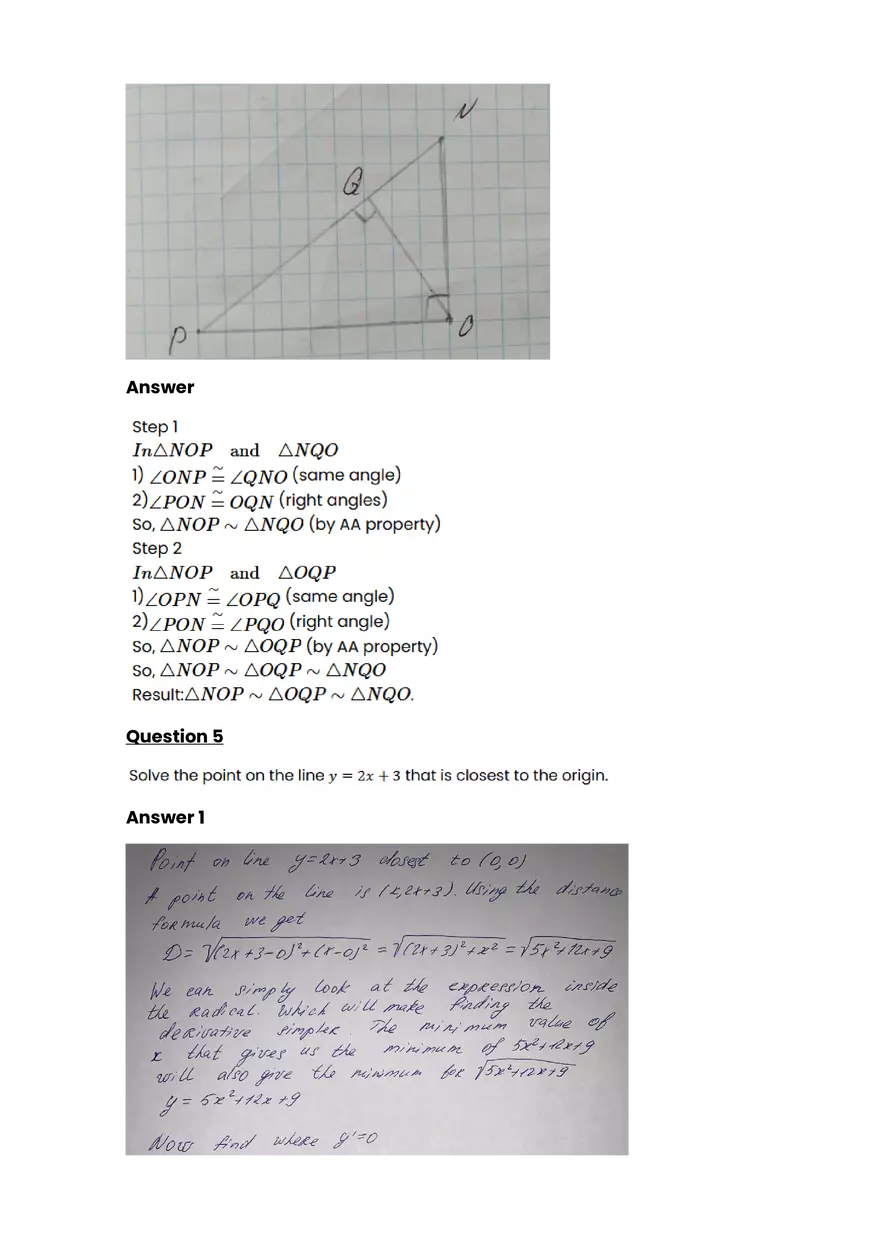 N
Q
P
O
Answer
Step 1
In△NOP and △NQO
1) ∠ONP ≅ ∠QNO (same angle)
2)∠PON ≅ OQN (right angles)
So, △NOP ∼ △NQO (by AA property)
Step 2
In△NOP and △OQP
1)∠OPN ≅ ∠OPQ (same angle)
2)∠PON ≅ ∠PQO (right angle)
So, △NOP ∼ △OQP (by AA property)
So, △NOP ∼ △OQP ∼ △NQO
Result:△NOP ∼ △OQP ∼ △NQO.
Question 5
Solve the point on the line y = 2x + 3 that is closest to the origin.
Answer 1
Point on line y=2x+3 closest to (0,0)
A point on the line is (x,2x+3). Using the distance
formula we get
D= √((2x+3-0)²+(x-0)²) = √((2x+3)²+x²) = √(5x²+12x+9)
We can simply look at the expression inside
the radical. Which will make finding the
derivative simpler. The minimum value of
x that gives us the minimum of 5x²+12x+9
will also give the minimum for √(5x²+12x+9)
y = 5x²+12x+9
Now find where y'=0